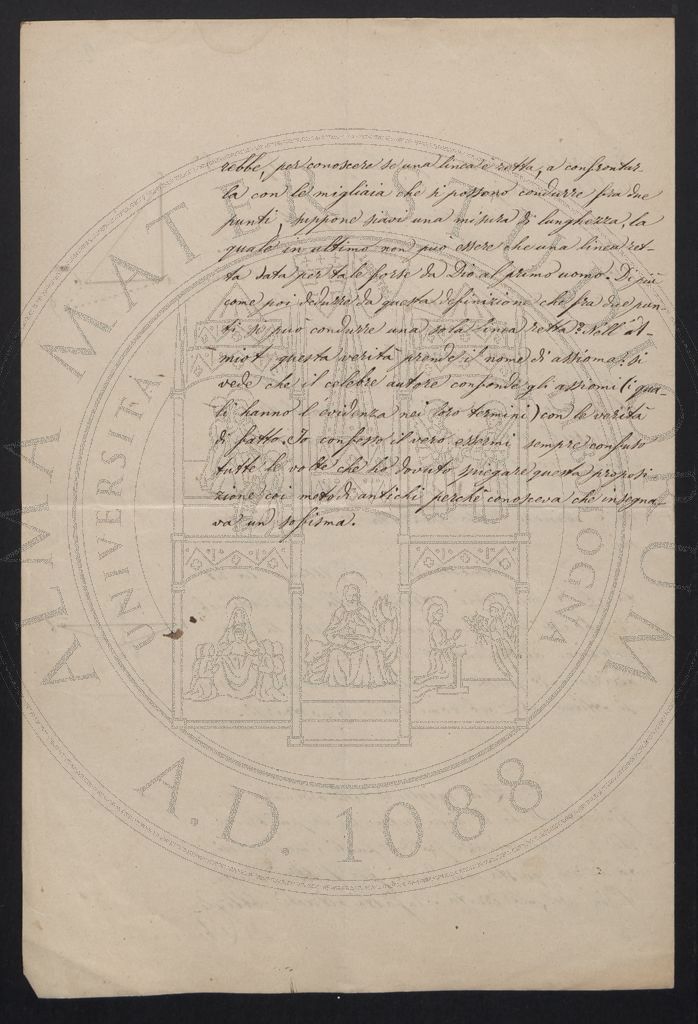 rebbe, per conoscere se una linea è retta, a confrontar
la con le migliaia che si possono condurre fra due
punti, suppone siavi una misura di lunghezza, la
quale in ultimo non può essere che una linea ret-
ta data per tale forse da Dio al primo uomo. Di più
come poi dedurre da questa definizione che fra due pun-
ti si può condurre una sola linea retta? Nell'A
miot questa verità prende il nome di assioma: si
vede che il celebre autore confonde gli assiomi (i qua-
li hanno l'evidenza nei loro termini) con le verità
di fatto. Io confesso il vero, essermi sempre confuso
tutte le volte che ho dovuto spiegare questa proposi
zione coi metodi antichi perchè conosceva che insegna-
va un soffisma.
ALMA MATER STUDIORUM
UNIVERSITÀ BOLOGNA
A.D. 1088